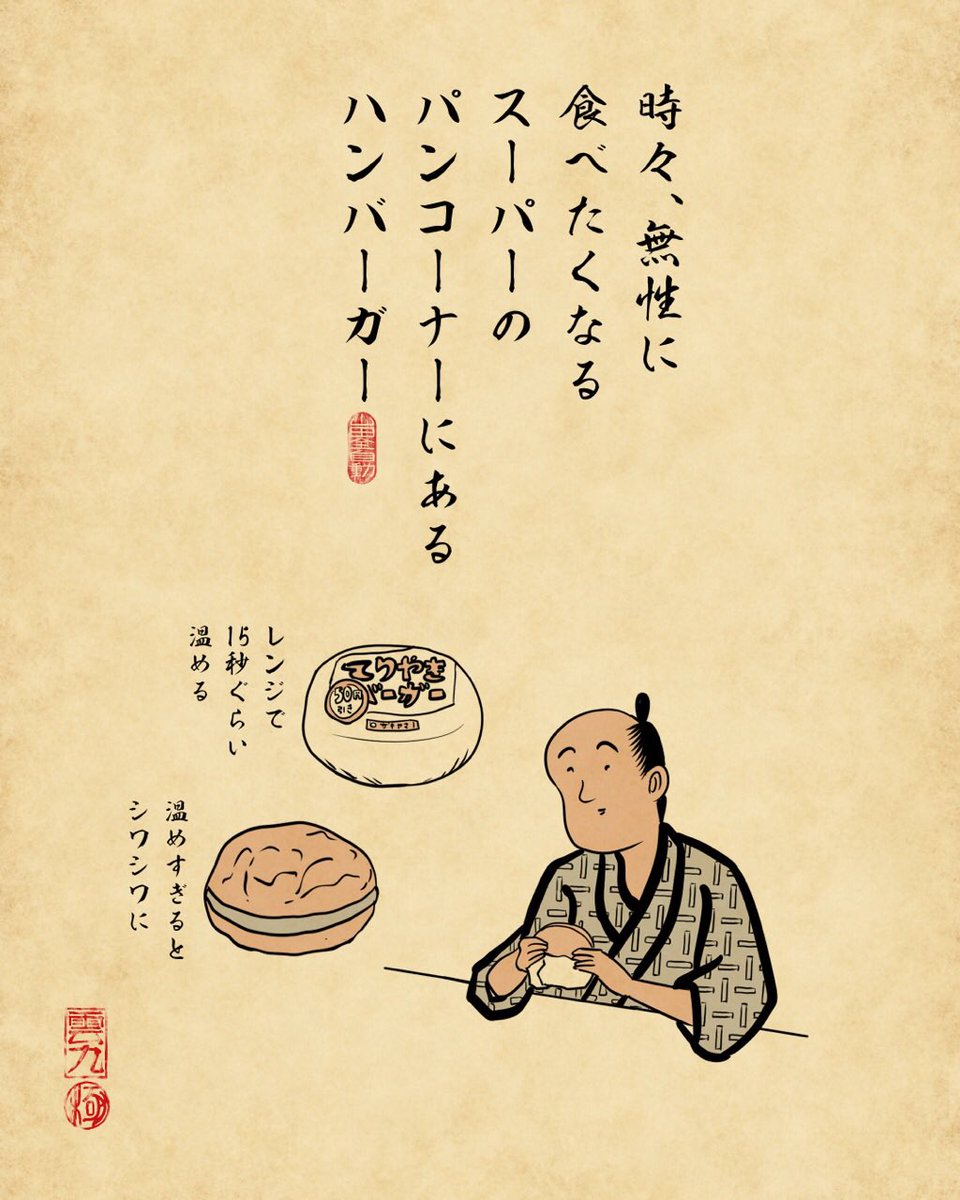 時々、無性に
食べたくなる
スーパーの
パンコーナーにある
ハンバーガー
レンジで
15秒ぐらい
温める
てりやき
バーガー
50円
引き
温めすぎると
シワシワに